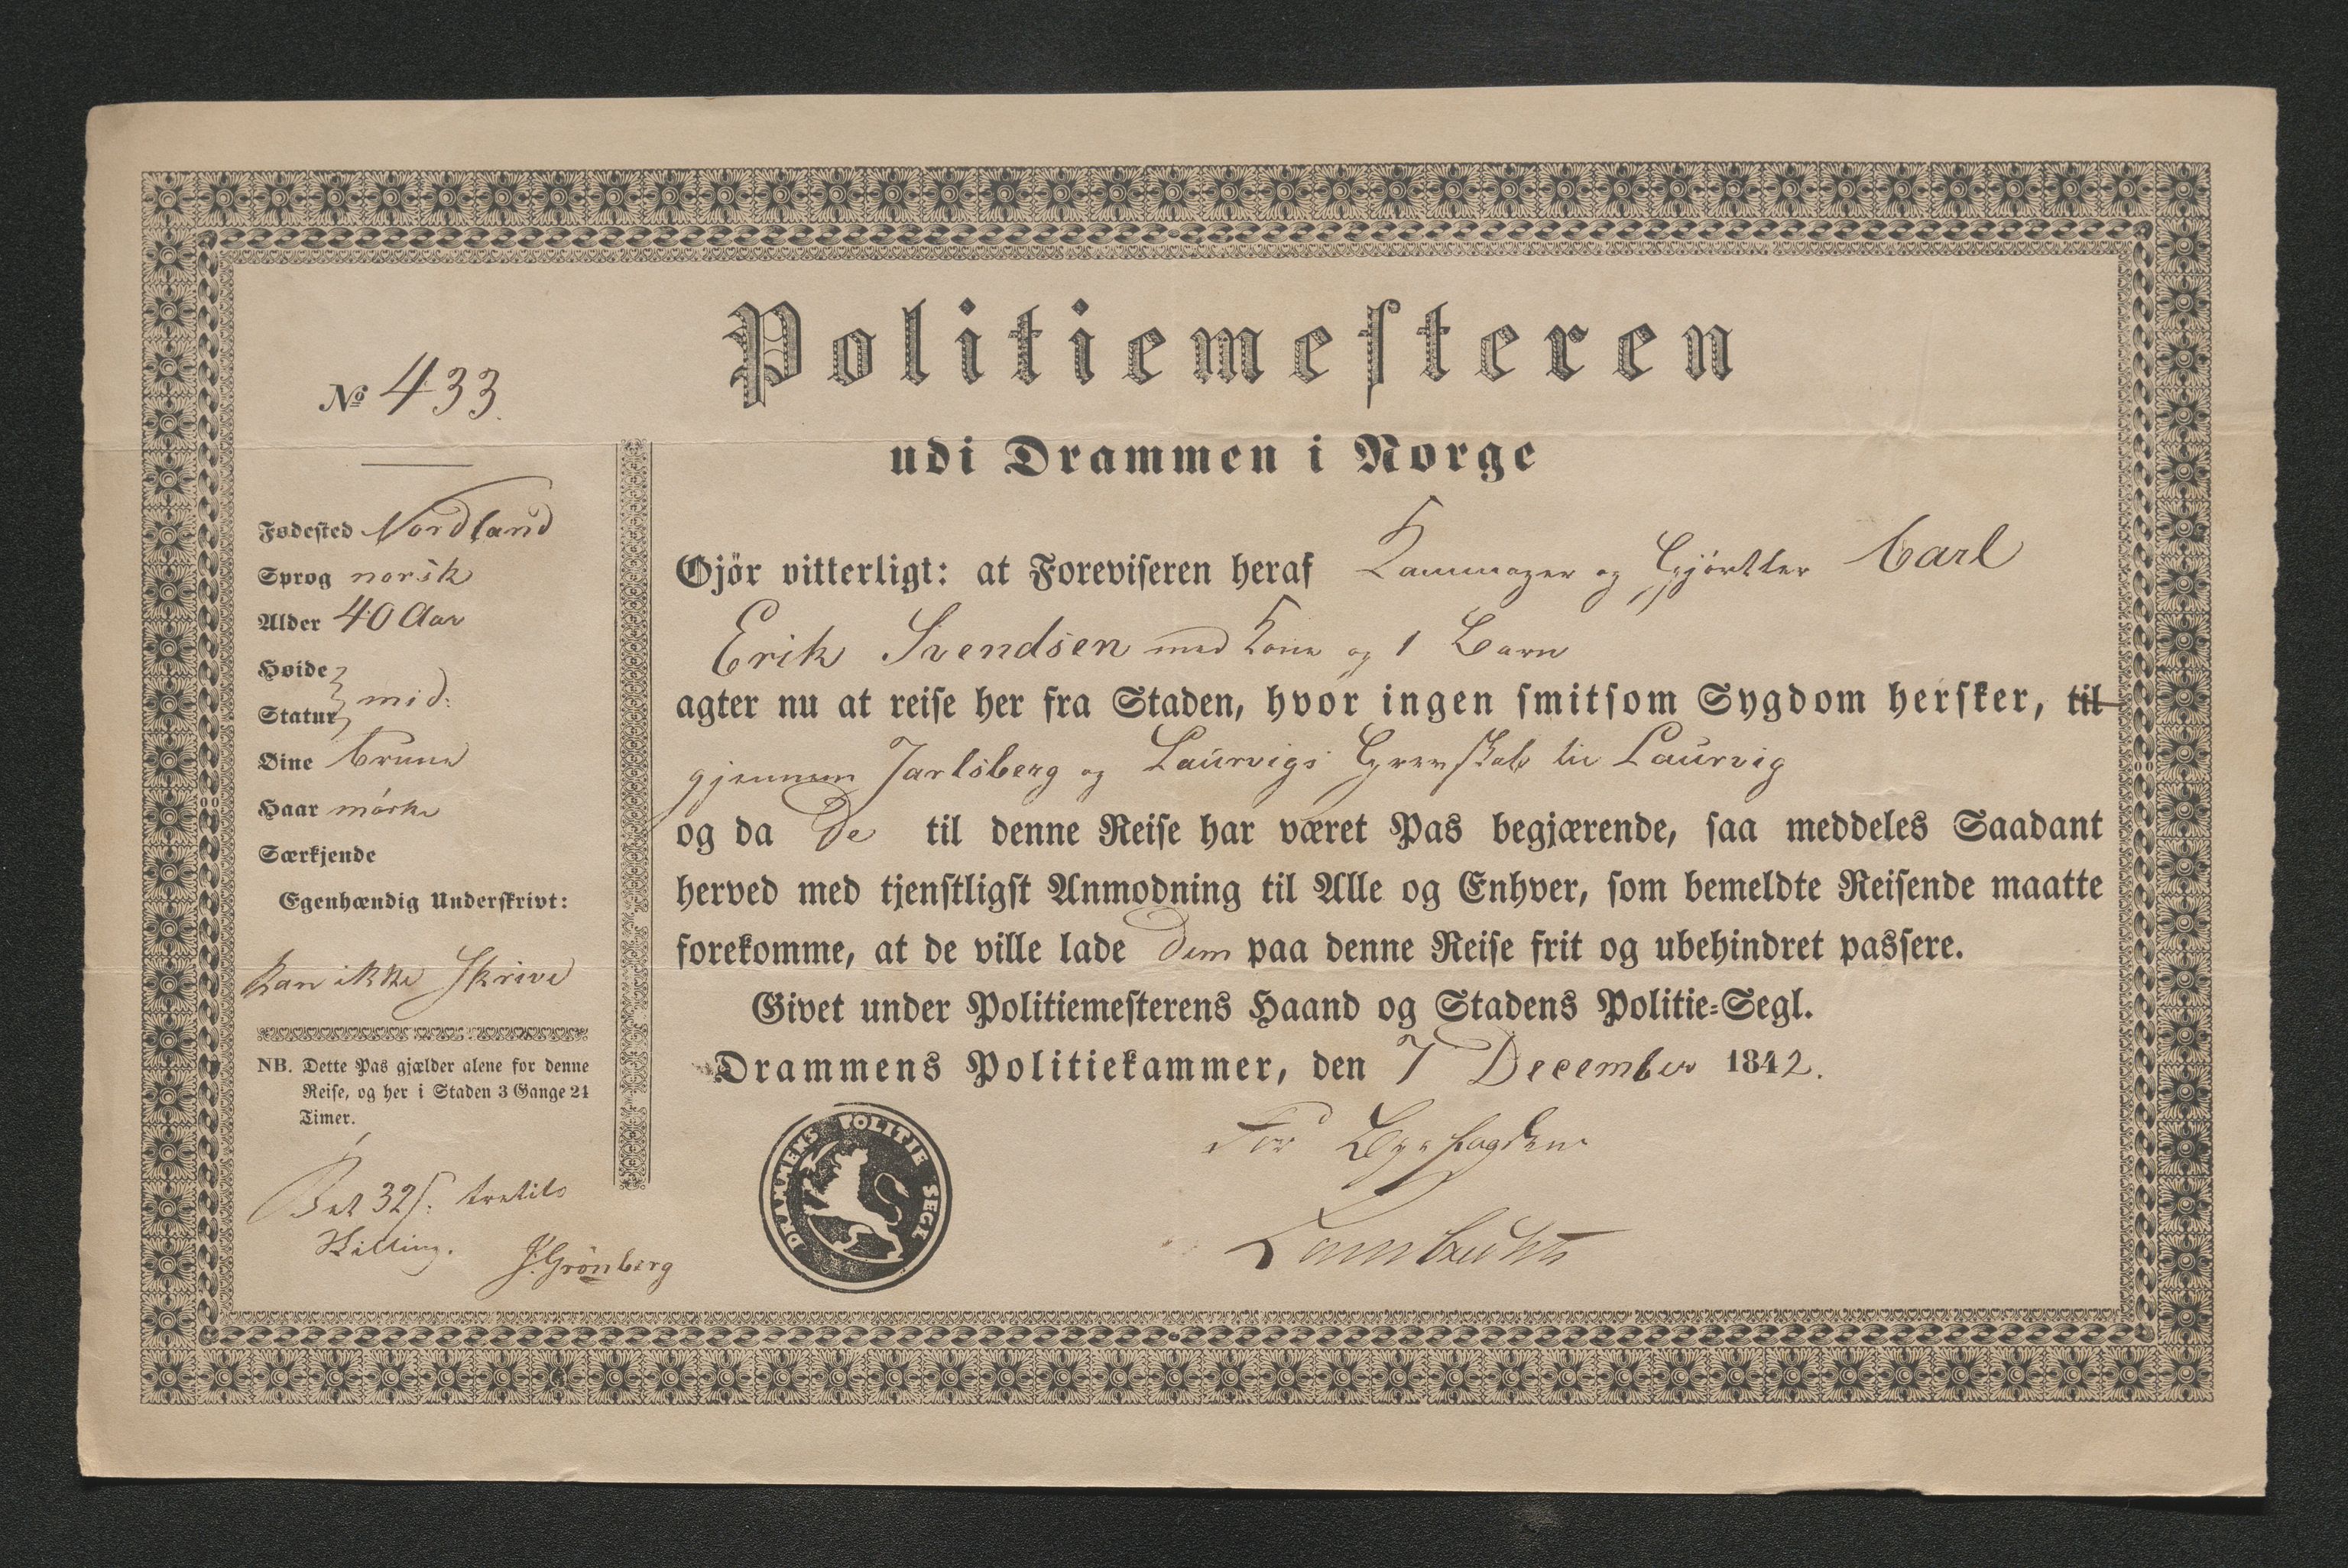 Politiemesteren
udi Drammen i Norge
No 433
Fødested Nordland
Sprog norsk
Alder 40 Aar
Høide
Statur } mid:
Øine brune
Haar mørke
Særkjende
Egenhændig Underskrivt:
kan ikke Skrive
NB. Dette Pas gjælder alene for denne
Reise, og her i Staden 3 Gange 24
Timer.
Bet 32 s. tretito
Skilling.
J. Grönberg
Gjör vitterligt: at Foreviseren heraf Kammager og Gjørtler Carl
Erik Svendsen med Kone og 1 Barn
agter nu at reise her fra Staden, hvor ingen smitsom Sygdom hersker, til
gjennem Jarlsberg og Laurvigs Grevskab til Laurvig
og da De til denne Reise har været Pas begjærende, saa meddeles Saadant
herved med tjenstligst Anmodning til Alle og Enhver, som bemeldte Reisende maatte
forekomme, at de ville lade dem paa denne Reise frit og ubehindret passere.
Givet under Politiemesterens Haand og Stadens Politie-Segl.
Drammens Politiekammer, den 7 December 1842.
For Byefogden
DRAMMENS POLITIE SEGL